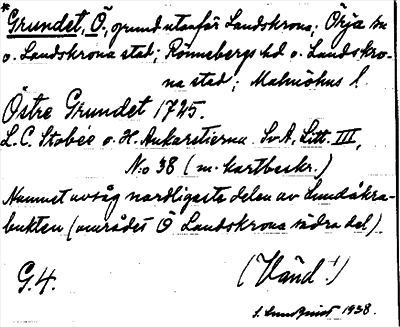 * Grundet, Ö, grund utanför Landskrona; Örja sn
o. Landskrona stad; Rönnebergs hd o. Landskro-
na stad; Malmöhus l.
Östre Grundet 1745.
L. C. Stobée o. H. Ankarstierna. SvA, Litt. III,
N:o 38 (m. kartbeskr.)
Namnet avsåg nordligaste delen av Lundåkra-
bukten (området Ö Landskrona södra del).
G.4.
(Vänd!)
S. Lundquist 1938.